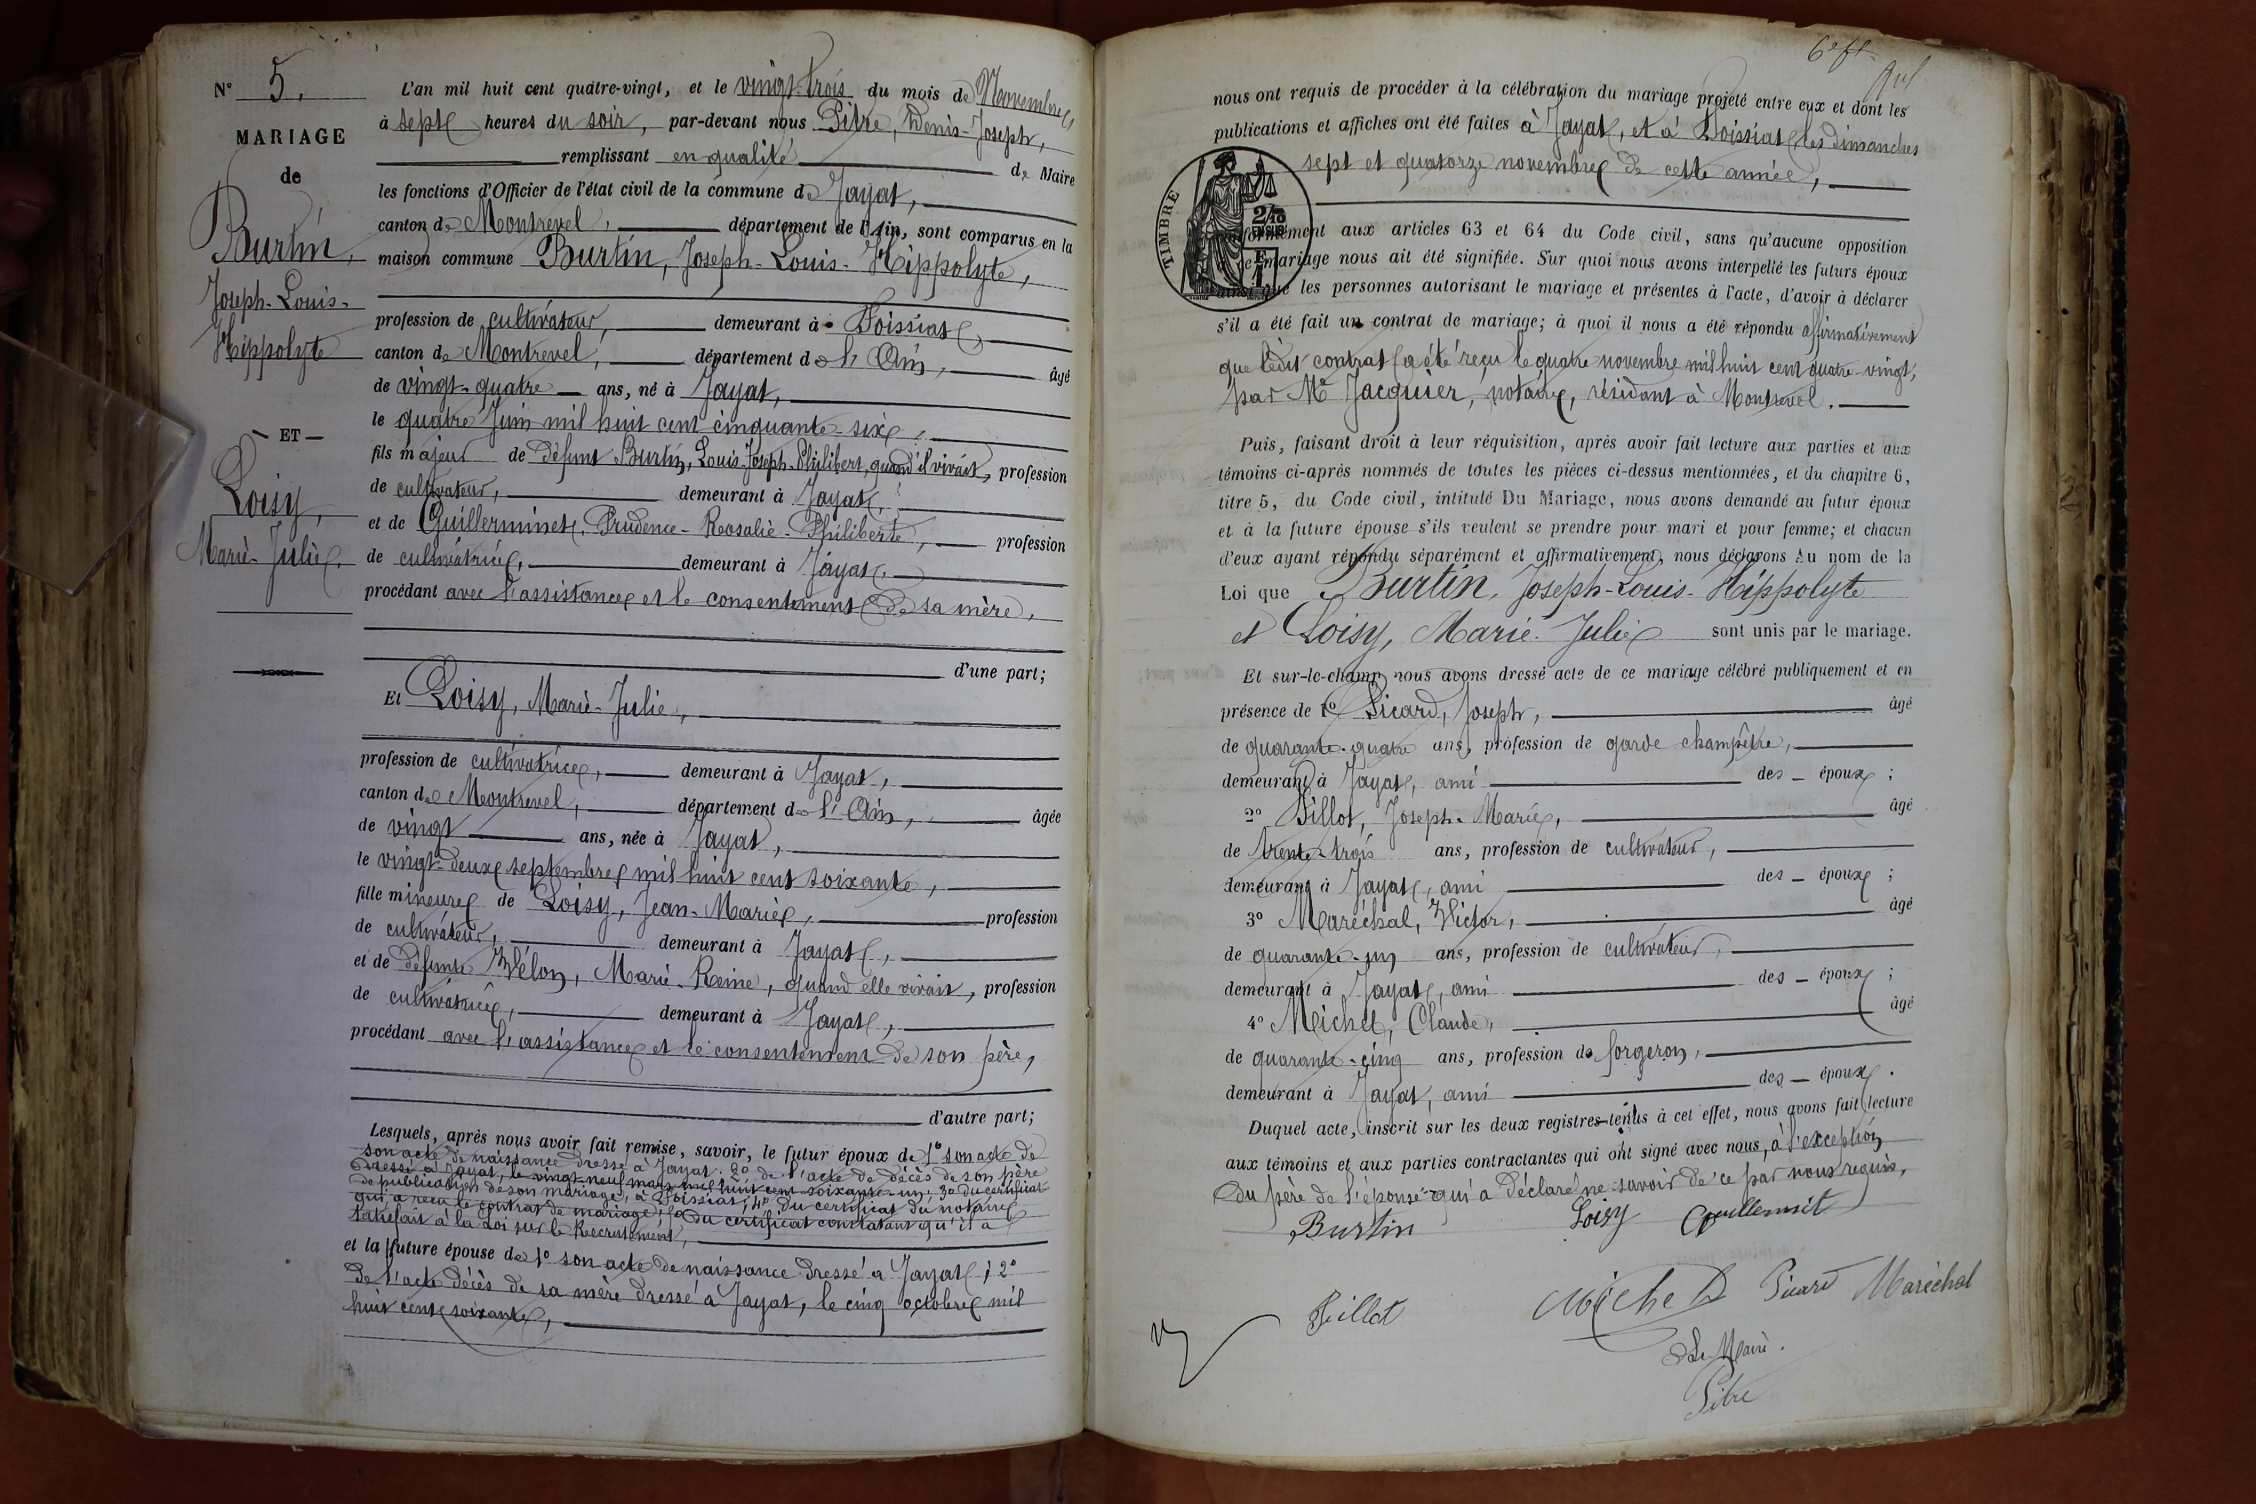 N° 5.
MARIAGE
de
Burtin,
Joseph-Louis-
Hippolyte
— ET —
Loisy,
Marie-Julie.
L'an mil huit cent quatre-vingt, et le vingt-trois du mois de Novembre,
à sept heures du soir, par-devant nous Pitre, Denis-Joseph,
remplissant en qualité de Maire
les fonctions d'Officier de l'état civil de la commune de Jayat,
canton de Montrevel, département de l'Ain, sont comparus en la
maison commune Burtin, Joseph-Louis-Hippolyte,
profession de cultivateur, demeurant à Foissiat,
canton de Montrevel, département de l'Ain, âgé
de vingt-quatre ans, né à Jayat,
le quatre Juin mil huit cent cinquante-six,
fils majeur de défunt Burtin, Louis-Joseph-Philibert, quand il vivait, profession
de cultivateur, demeurant à Jayat,
et de Guillerminet, Prudence-Rosalie-Philiberte, profession
de cultivatrice, demeurant à Jayat,
procédant avec l'assistance et le consentement de sa mère,
d'une part;
Et Loisy, Marie-Julie,
profession de cultivatrice, demeurant à Jayat,
canton de Montrevel, département de l'Ain, âgée
de vingt ans, née à Jayat,
le vingt-deux septembre mil huit cent soixante,
fille mineure de Loisy, Jean-Marie, profession
de cultivateur, demeurant à Jayat,
et de défunte Vélon, Marie-Reine, quand elle vivait, profession
de cultivatrice, demeurant à Jayat,
procédant avec l'assistance et le consentement de son père,
d'autre part;
Lesquels, après nous avoir fait remise, savoir, le futur époux de 1° son acte de
son acte de naissance dressé à Jayat; 2° de l'acte de décès de son père
dressé à Jayat, le vingt-neuf mars mil huit cent soixante-un; 3° du certificat
de publication de son mariage, à Foissiat; 4° du certificat du notaire
qui a reçu le contrat de mariage; 5° du certificat constatant qu'il a
satisfait à la Loi sur le Recrutement,
et la future épouse de 1° son acte de naissance dressé à Jayat; 2°
de l'acte décès de sa mère dressé à Jayat, le cinq octobre mil
huit cent soixante,
6e ft
nous ont requis de procéder à la célébration du mariage projeté entre eux et dont les
publications et affiches ont été faites à Jayat, et à Foissiat les dimanches
sept et quatorze novembre de cette année,
TIMBRE
conformément aux articles 63 et 64 du Code civil, sans qu'aucune opposition
ce mariage nous ait été signifiée. Sur quoi nous avons interpellé les futurs époux
ainsi que les personnes autorisant le mariage et présentes à l'acte, d'avoir à déclarer
s'il a été fait un contrat de mariage; à quoi il nous a été répondu affirmativement
que ledit contrat a été reçu le quatre novembre mil huit cent quatre-vingt,
par Me Jacquier, notaire, résidant à Montrevel.
Puis, faisant droit à leur réquisition, après avoir fait lecture aux parties et aux
témoins ci-après nommés de toutes les pièces ci-dessus mentionnées, et du chapitre 6,
titre 5, du Code civil, intitulé Du Mariage, nous avons demandé au futur époux
et à la future épouse s'ils veulent se prendre pour mari et pour femme; et chacun
d'eux ayant répondu séparément et affirmativement, nous déclarons Au nom de la
Loi que Burtin, Joseph-Louis-Hippolyte
et Loisy, Marie-Julie sont unis par le mariage.
Et sur-le-champ nous avons dressé acte de ce mariage célébré publiquement et en
présence de 1° Picard, Joseph, âgé
de quarante-quatre ans, profession de garde champêtre,
demeurant à Jayat, ami des époux;
2° Billot, Joseph-Marie, âgé
de trente-trois ans, profession de cultivateur,
demeurant à Jayat, ami des époux;
3° Maréchal, Victor, âgé
de quarante-un ans, profession de cultivateur,
demeurant à Jayat, ami des époux;
4° Michel, Claude, âgé
de quarante-cinq ans, profession de forgeron,
demeurant à Jayat, ami des époux.
Duquel acte, inscrit sur les deux registres tenus à cet effet, nous avons fait lecture
aux témoins et aux parties contractantes qui ont signé avec nous, à l'exception
du père de l'épouse qui a déclaré ne savoir de ce par nous requis.
Burtin Loisy Guilleminet
Billot Michel Picard Maréchal
Le Maire.
Pitre